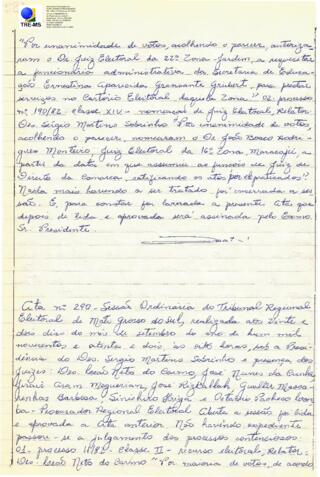 TRE-MS
"Por unanimidade de votos, acolhendo o parecer, autoriza-
ram o Dr. Juiz Eleitoral da 22ª Zona-Jardim, a requisitar
a funcionária administrativa da Secretaria de Educa-
ção Ernestina Aparecida para prestar
serviços no Cartório Eleitoral daquela Zona". 02. processo
nº 190/82. classe XIV - nomeação de Juiz Eleitoral, Relator:
Des. Sérgio Martins Sobrinho "Por unanimidade de votos,
acolhendo o parecer, nomearam o Dr. João Bosco Rodri-
gues Monteiro, Juiz Eleitoral da 16ª Zona, Maracajú, a
partir da data em que assumiu as funções de Juiz de
Direito da Comarca, ratificando os atos por ele praticados".
Nada mais havendo a ser tratado, foi encerrada a ses-
são. E, para constar foi lavrada a presente Ata que
depois de lida e aprovada será assinada pelo Exmo.
Sr. Presidente.
Ata nº 290 - Sessão Ordinária do Tribunal Regional
Eleitoral de Mato Grosso do Sul, realizada aos vinte e
dois dias do mês de setembro do ano de hum mil
novecentos e oitenta e dois, às horas, sob a Presi-
dência do Des. Sérgio Martins Sobrinho e presença dos
Juízes: Des. Leão Neto do Carmo, José Nunes da Cunha,
Aram Meguerian, José Rizkallah, Gualter Masca-
renhas Barbosa, e Octávio Pacheco
Procurador Regional Eleitoral. Aberta a sessão foi lida
e aprovada a Ata anterior. Não havendo expediente
passou-se a julgamento dos processos contenciosos:
01. processo classe II - recurso eleitoral, Relator:
Des. Leão Neto do Carmo "Por maioria de votos, de acordo